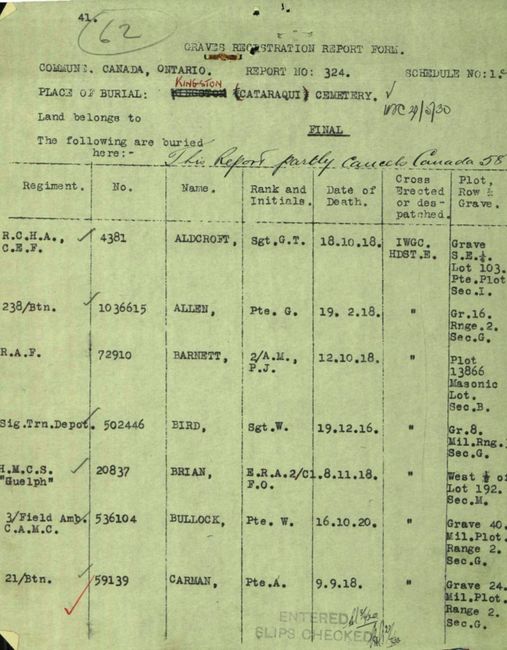 41.
62
GRAVES REGISTRATION REPORT FORM.
COMMUNE. CANADA, ONTARIO. REPORT NO: 324. SCHEDULE NO:1.
KINGSTON
PLACE OF BURIAL: KINGSTON (CATARAQUI) CEMETERY. ✓
Land belongs to
FINAL
The following are buried
here:- This Report partly cancels Canada 58
Regiment. No. Name. Rank and Initials. Date of Death. Cross Erected or des-patched. Plot, Row & Grave.
R.C.H.A., ✓ 4381 ALDCROFT, Sgt.G.T. 18.10.18. IWGC. Grave
C.E.F. HDST.E. S.E.¼.
Lot 103.
Pte.Plot
Sec.I.
238/Btn. ✓ 1036615 ALLEN, Pte. G. 19. 2.18. " Gr.16.
Rnge.2.
Sec.G.
R.A.F. 72910 BARNETT, 2/A.M., 12.10.18. " Plot
P.J. 13866
Masonic
Lot.
Sec.B.
Sig.Trn.Depot. ✓ 502446 BIRD, Sgt.W. 19.12.16. " Gr.8.
Mil.Rng.
Sec.G.
H.M.C.S. ✓ 20837 BRIAN, E.R.A.2/Cl.8.11.18. " West ½ of
"Guelph" F.O. Lot 192.
Sec.M.
3/Field Amb. ✓ 536104 BULLOCK, Pte. W. 16.10.20. " Grave 40.
C.A.M.C. Mil.Plot.
Range 2.
Sec.G.
21/Btn. ✓ 59139 CARMAN, Pte.A. 9.9.18. " Grave 24.
Mil.Plot.
Range 2.
Sec.G.
ENTERED
SLIPS CHECKED